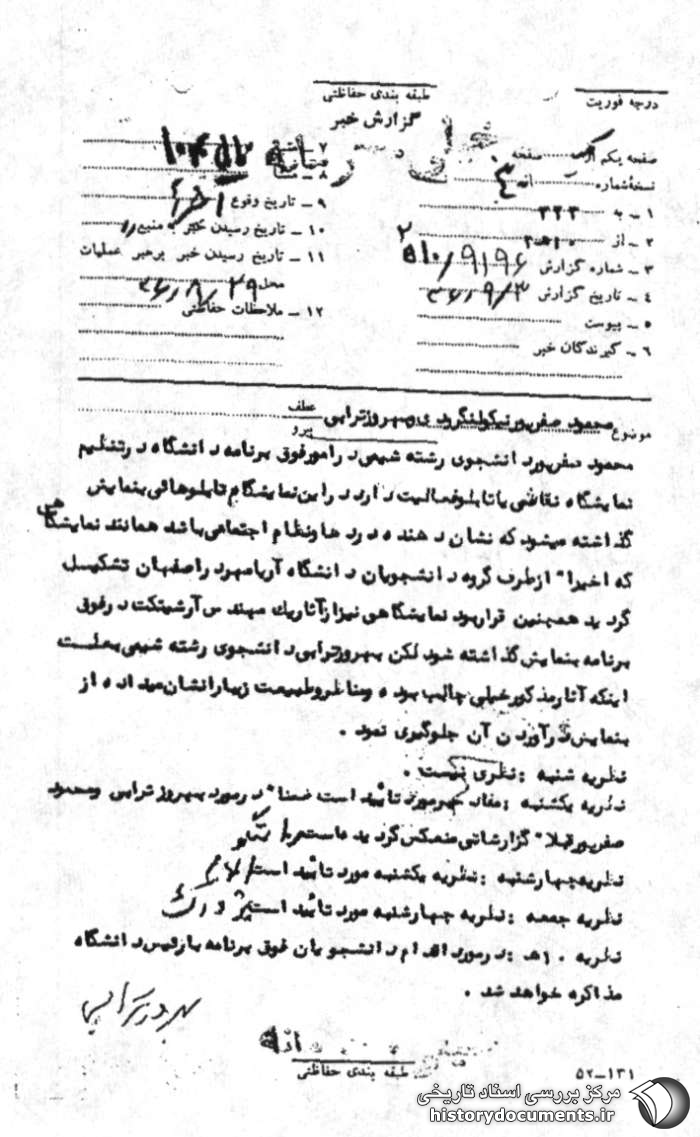 درجه فوریت
طبقه بندی حفاظتی
گزارش خبر
صفحه یکم از صفحه
نسخه شماره
۱ ـ به ۳۲۳
۲ ـ از
۳ ـ شماره گزارش ۹۱۹۶/
۴ ـ تاریخ گزارش ۳۶/۹/۳
۵ ـ پیوست
۶ ـ گیرندگان خبر
۹ ـ تاریخ وقوع
۱۰ ـ تاریخ رسیدن خبر به منبع
۱۱ ـ تاریخ رسیدن خبر برهبر عملیات
محل ۳۶/۸/۲۹
۱۲ ـ ملاحظات حفاظتی
موضوع محمود صفرپور نیکولنگرودی وبهروزترابی
عطف
پیرو
محمود صفرپور دانشجوی رشته شیمی در امورفوق برنامه دانشگاه در تنظیم
نمایشگاه نقاشی یا تابلو فعالیت دارد در این نمایشگاه تابلوهائی بنمایش
گذاشته میشود که نشان دهنده دردها ونظام اجتماعی باشد همانند نمایشگاهی
که اخیرا" ازطرف گروه دانشجویان دانشگاه آریامهر در اصفهان تشکیل
گردید همچنین قراربود نمایشگاهی نیز ازآثاریك مهندس آرشیتکت در فوق
برنامه بنمایش گذاشته شود لکن بهروزترابی دانشجوی رشته شیمی بعلت
اینکه آثار مذکور خیلی جالب بوده ومناظر وطبیعت زیبا رانشان میداده از
بنمایش درآوردن آن جلوگیری نمود .
نظریه شنبه : نظری نیست .
نظریه یکشنبه : مفاد خبر مورد تائید است ضمنا" در مورد بهروز ترابی ومحمود
صفرپور قبلا" گزارشاتی منعکس گردیده است
نظریه چهارشنبه : نظریه یکشنبه مورد تائید است
نظریه جمعه : نظریه چهارشنبه مورد تائید است
نظریه ۱۰هـ : در مورد اقدام دانشجویان فوق برنامه با رئیس دانشگاه
مذاکره خواهد شد .
بهروز ترابی
طبقه بندی حفاظتی
۵۲-۱۳۱
مرکز بررسی اسناد تاریخی
historydocuments.ir